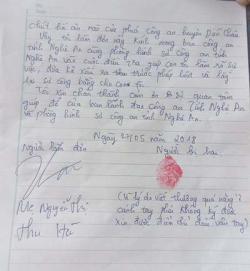 của công an huyện Diễn Châu
Vậy tôi làm đơn này kính mong ban công an
tỉnh Nghệ An cùng phòng hình sự công an tỉnh
Nghệ An vào cuộc điều tra giúp con tôi làm rõ sự
việc, đưa kẻ xấu ra trước pháp luật và lấy
lại sự công bằng cho con tôi
Tôi xin chân thành cảm ơn sự quan tâm
giúp đỡ của ban lãnh đạo công an Tỉnh Nghệ An
và phòng hình sự công an tỉnh Nghệ An.
Ngày 27/05 năm 2018
Người làm đơn
Người bị hại
Mẹ Nguyễn Thị
Thu Hà
(Vì lý do vết thương quá nặng ở
cánh tay phải không ký được
xin được điểm chỉ dấu vân tay)